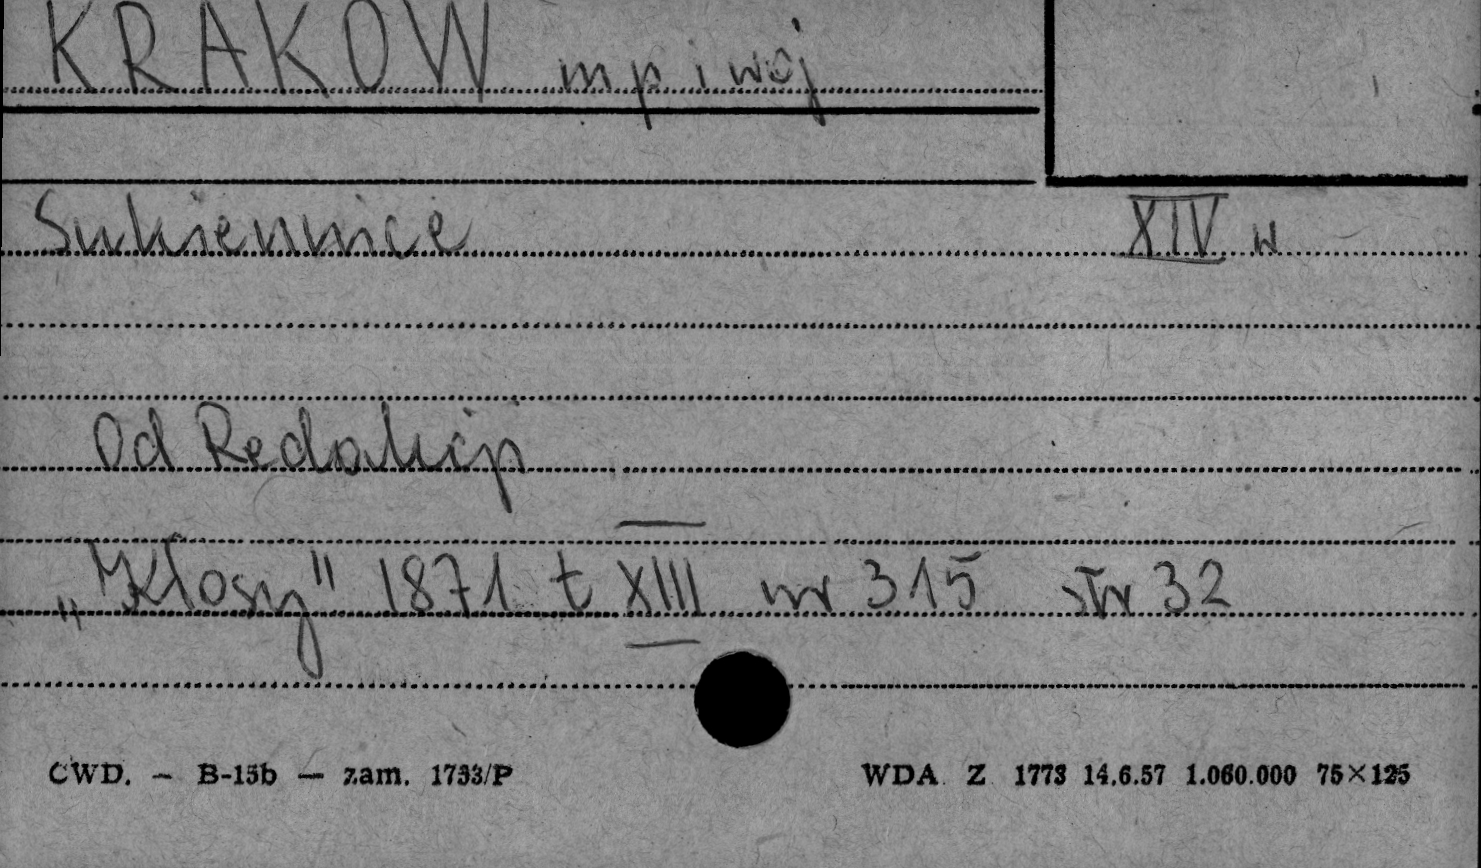 KRAKOW m p i woj
Sukiennice XIV w
Od Redakcji
„Kłosy" 1871 t XIII nr 315 str 32
CWD. — B-15b — zam. 1733/P WDA Z 1773 14.6.57 1.060.000 75×125